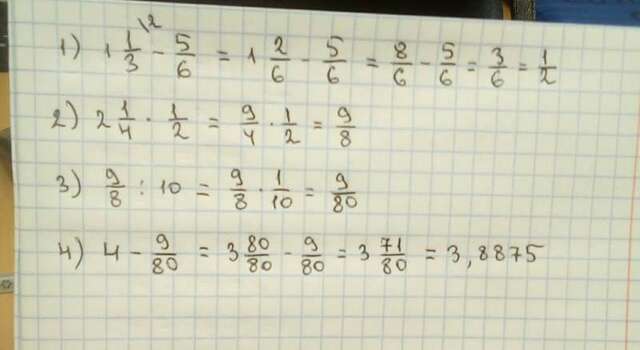 1) 1 1/3 \2 - 5/6 = 1 2/6 - 5/6 = 8/6 - 5/6 = 3/6 = 1/2
2) 2 1/4 · 1/2 = 9/4 · 1/2 = 9/8
3) 9/8 : 10 = 9/8 · 1/10 = 9/80
4) 4 - 9/80 = 3 80/80 - 9/80 = 3 71/80 = 3,8875